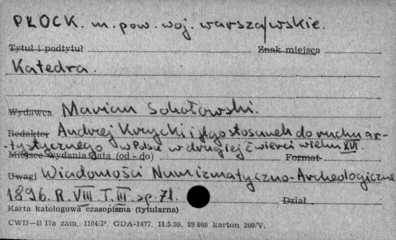 PŁOCK. m. pow. woj. warszawskie.
Tytuł i podtytuł Znak miejsca
Katedra.
Wydawca Marian Sokołowski.
Redaktor Andrzej Krzycki i jego stosunek do ruchu ar-
tystycznego w Polsce w drugiej ćwierci wieku XVI.
Miejsce wydania data (od - do) Format
Uwagi Wiadomości Numizmatyczno-Archeologiczne
1896. R. VIII T. III sp. 71. Dział
Karta katalogowa czasopisma (tytularna)
CWD—B 17a zam. 1104/P. GDA-1477. 11.5.59. 89 000 karton 200/V.